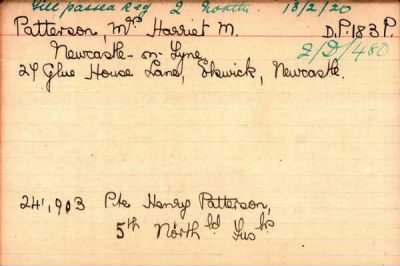 passed Reg 2 North. 13/2/20
Patterson, Mrs Harriet M. D.P. 183 P.
Newcastle-on-Tyne 2/D/480
24 Glue House Lane, Elswick, Newcastle.
24,903 Pte Henry Patterson,
5th Northd Fusrs